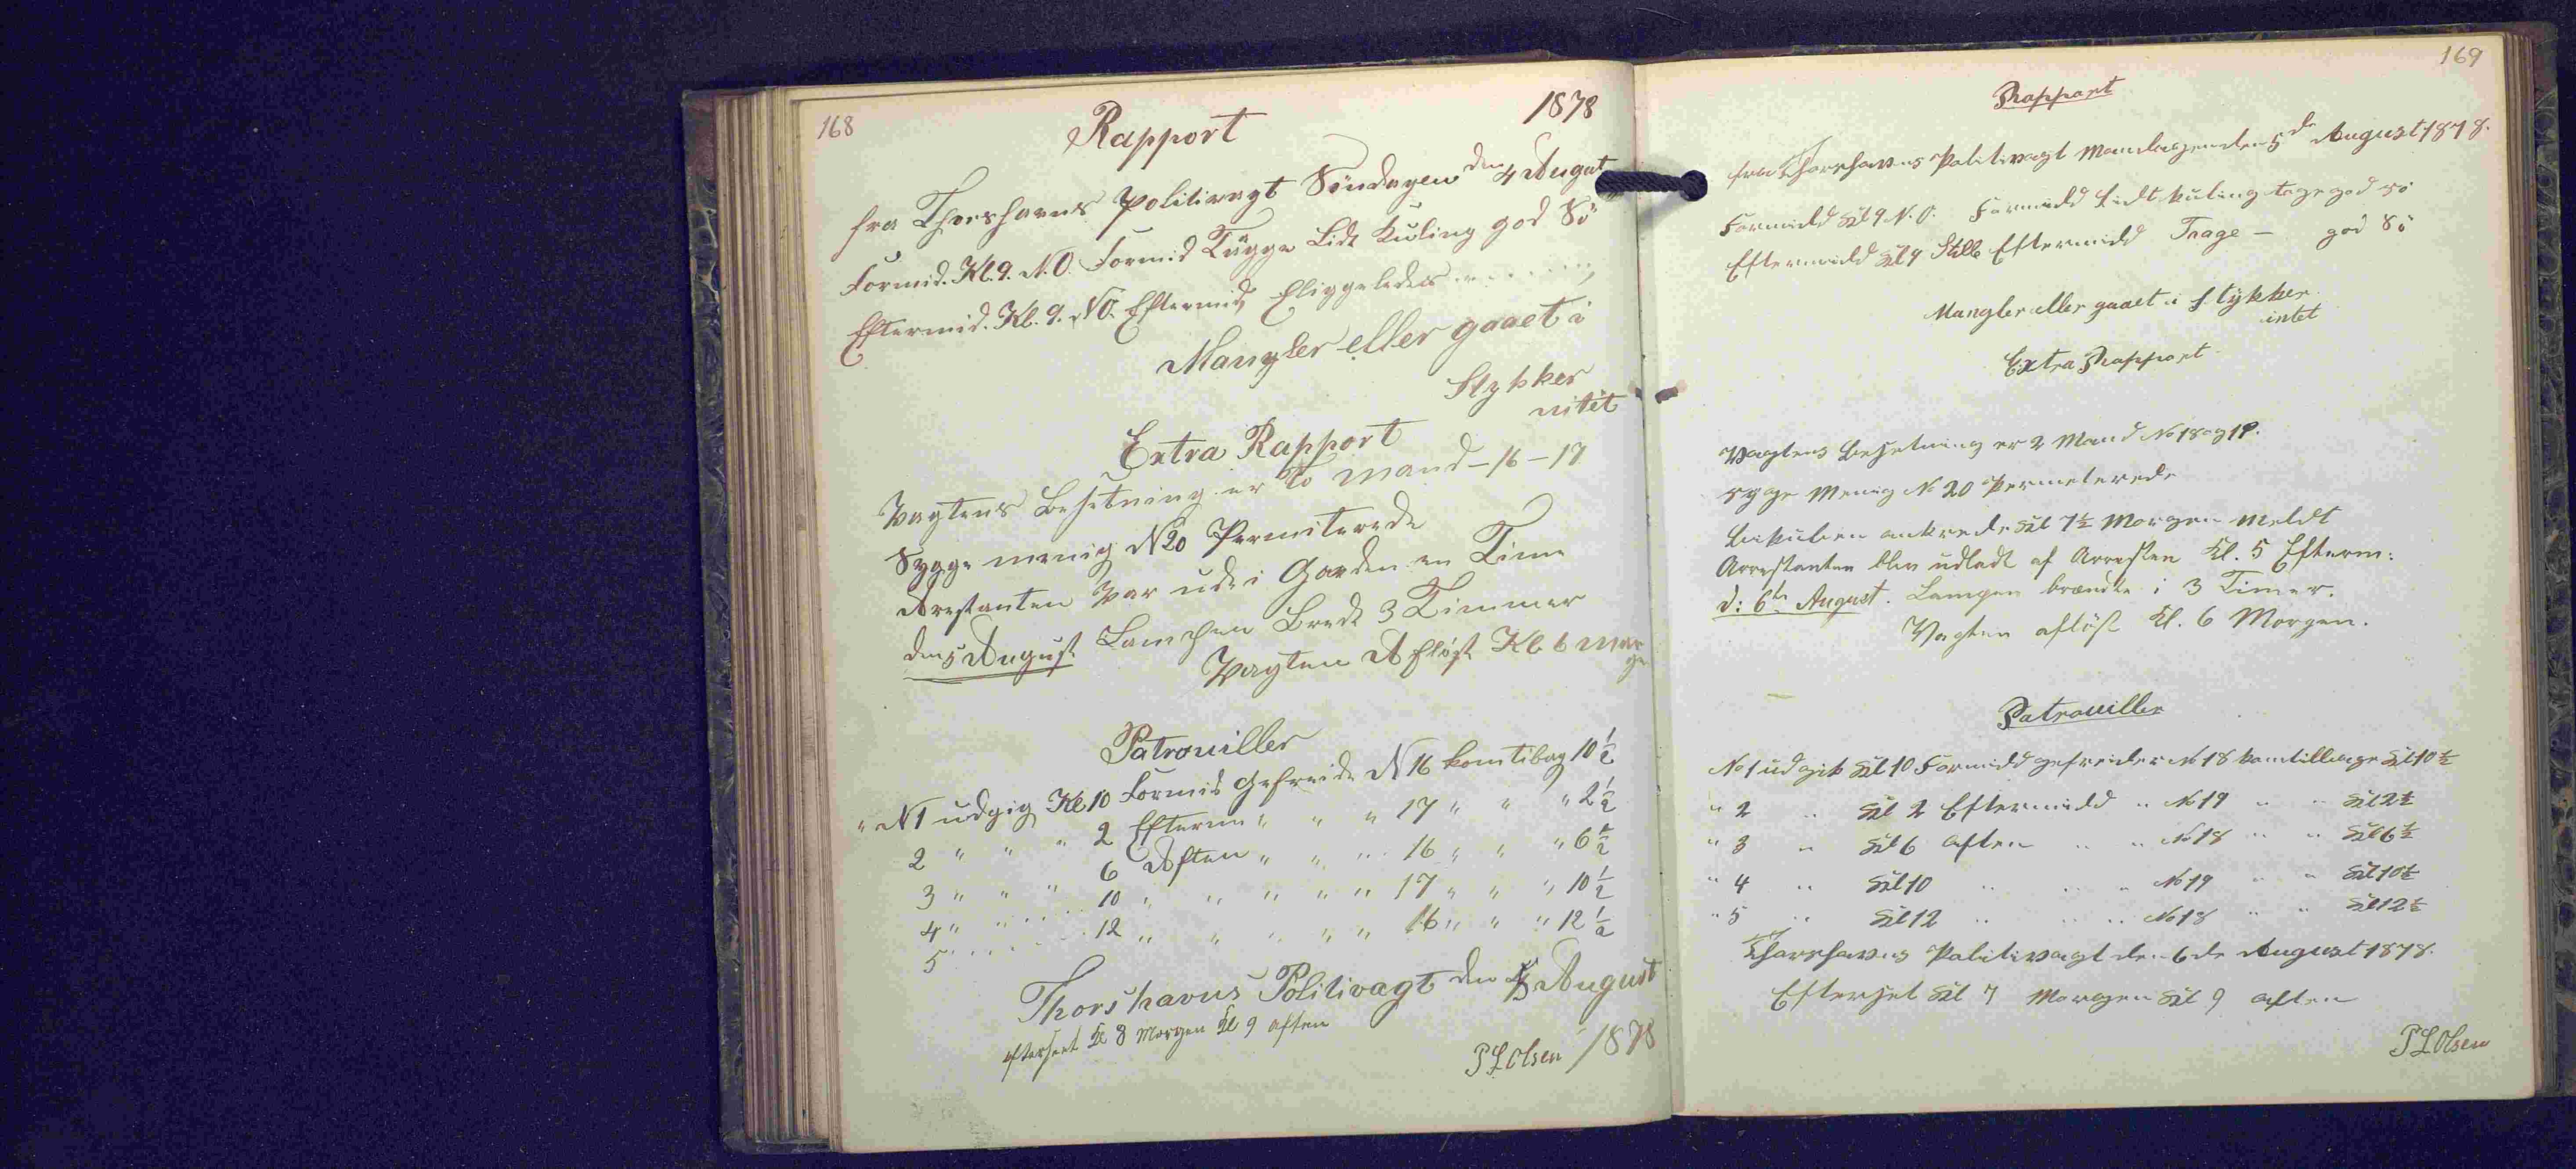 168
Rapport 1878
fra Thorshavns Politivagt Søndagen den 4 August
Formid. Kl. 9. N.O. Formid Tugge Lidt Kuling god Sø
Eftermid. Kl. 9. NO. Eftermid Eliggeledes
Mangler eller gaaet i
Stykker
intet
Extra Rapport
Vagtens Besetning er to mand - 16 - 17
Sygge menig N 20 Permiterede
Arestanten var ude i Garden en Time
den 5 August Lampen Bredt 3 Timmer
Vagten Afløst Kl. 6 Morge
Patrouiller
" N 1 udgig Kl 10 Formid Gefreide N 16 kom tibag 10 1/2
2 " " " 2 Efterm " " " 17 " " " 2 1/2
3 " " " 6 Aften " " " 16 " " " 6 1/2
4 " " " 10 " " " " " 17 " " " 10 1/2
5 " " " 12 " " " " " 16 " " " 12 1/2
Thorshavns Politivagt den 5 August
efterseet Kl 8 Morgen Kl 9 aften
P L Olsen 1878
169
Rapport
fra Thorshavns Politivagt Mandagen den 5de August 1878.
Formidd Kl 9 N.O. Formidd Lidt Kuling tage god sø
Eftermidd Kl 9 Stille Eftermidd Tage - god Sø
Mangler eller gaaet i stykker
intet
Extra Rapport
Vagtens Besetning er 2 Mand No 18 og 19.
syge Menig No 20 Permeterede
ankrede Kl 7 1/2 Morgen meldt
Arrestanten blev udladt af Arresten Kl. 5 Efterm:
d: 6te August. Lampen brændte i 3 Timer.
Vagten afløst Kl. 6 Morgen.
Patrouiller
No 1 udgik Kl 10 Formidd gefreider No 18 kom tillbage Kl 10 1/2
" 2 " Kl 2 Eftermidd " No 19 " " Kl 2 1/2
" 3 " Kl 6 Aften " " No 18 " " Kl 6 1/2
" 4 " Kl 10 " " " No 19 " " Kl 10 1/2
" 5 " Kl 12 " " " No 18 " " Kl 12 1/2
Thorshavns Politivagt den 6de August 1878.
Efterset Kl 7 Morgen Kl 9 aften
P L Olsen